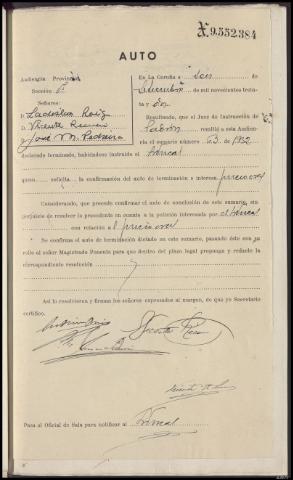 X 9.552.384
AUTO
Audiencia Provincial
Sección
Señores:
D. Ladislao Roig
D. Vicente
D. José M. Pedreira
En La Coruña a seis de
de mil novecientos trein-
ta y dos
Resultando, que el Juez de Instrucción de
Padrón remitió a esta Audien-
cia el sumario número 63 de 1932
declarado terminado, habiéndose instruido el fiscal
quien solicita la confirmación del auto de terminación e interesa
Considerando, que procede confirmar el auto de conclusión de este sumario, sin
perjuicio de resolver lo procedente en cuanto a la petición interesada por el fiscal
con relación a
Se confirma el auto de terminación dictado en este sumario, pasando éste con su
rollo al señor Magistrado Ponente para que dentro del plazo legal proponga y redacte la
correspondiente resolución
Así lo resolvieron y firman los señores expresados al margen, de que yo Secretario
certifico.
Pasa al Oficial de Sala para notificar al fiscal